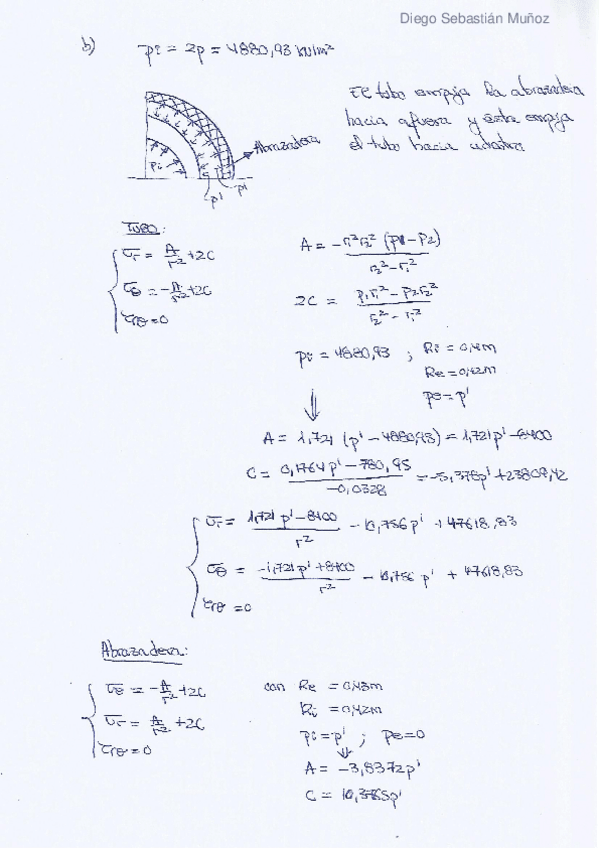 Diego Sebastián Muñoz
b) pi = 2p = 4880,93 kN/m²
El tubo empuja la abrazadera
hacia afuera y ésta empuja
el tubo hacia adentro
Abrazadera
Pi
p' p'
TUBO:
σr = A/r² + 2C
A = -r₁²r₂² (p1 - p2) / r₂² - r₁²
σθ = -A/r² + 2C
2C = p₁r₁² - p₂r₂² / r₂² - r₁²
τrθ = 0
pi = 4880,93 ; Ri = 0,4m
Re = 0,42m
pe = p'
⇓
A = 1,721 (p' - 4880,93) = 1,721p' - 8400
C = 0,1764p' - 780,95 / -0,0328 = -5,378p' + 23809,42
σr = 1,721p' - 8400 / r² - 10,756p' + 47618,83
σθ = -1,721p' + 8400 / r² - 10,756p' + 47618,83
τrθ = 0
Abrazadera:
σθ = -A/r² + 2C con Re = 0,43m
Ri = 0,42m
σr = A/r² + 2C
pi = p' ; pe = 0
τrθ = 0
⇓
A = -3,8372p'
C = 10,3765p'